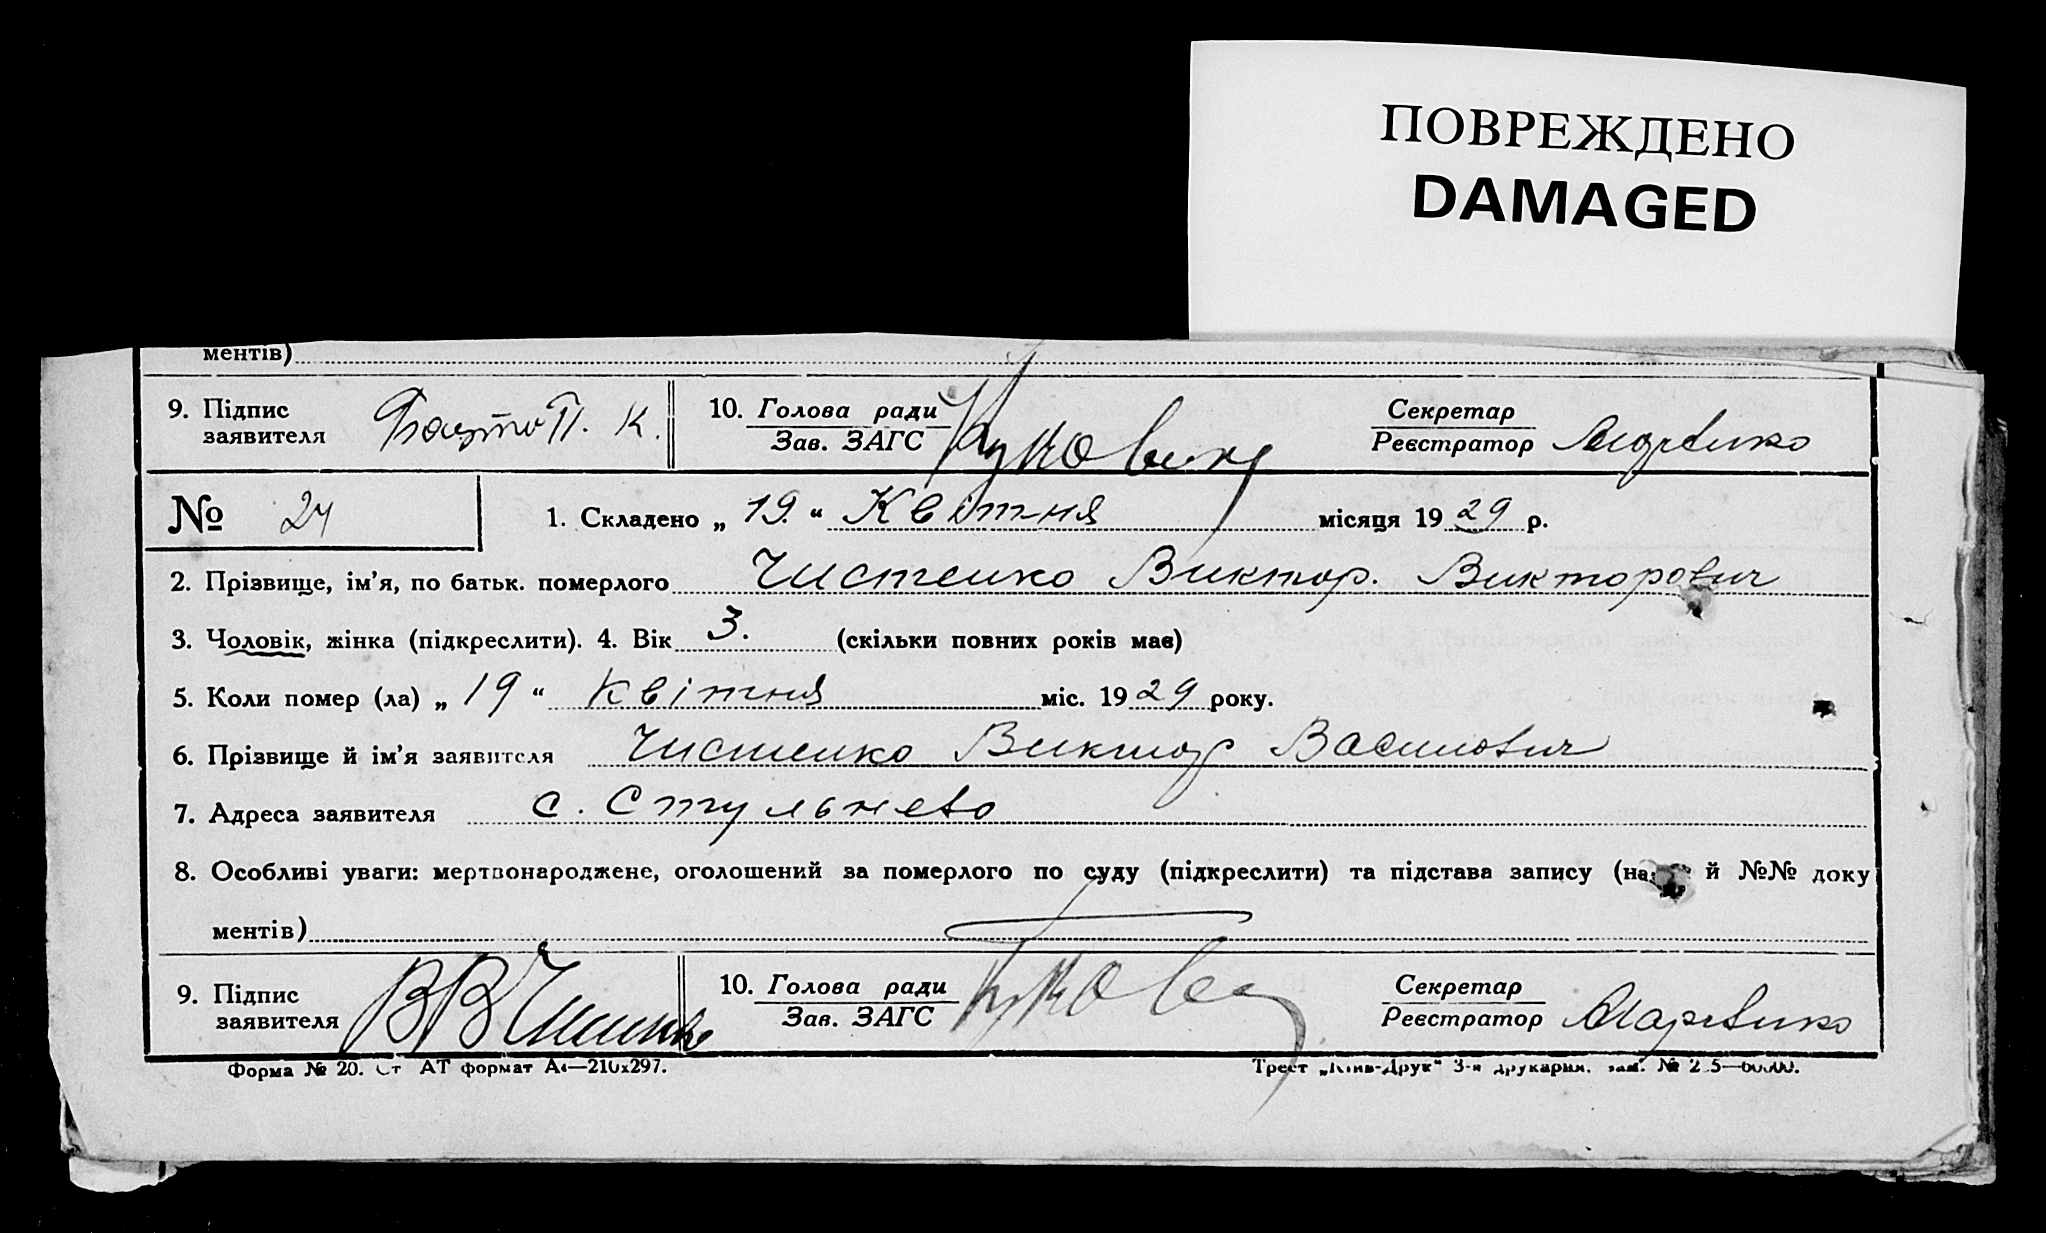 ПОВРЕЖДЕНО
DAMAGED
ментів)
9. Підпис заявителя П. К. 10. Голова ради Зав. ЗАГС Секретар Реєстратор
№ 24 1. Складено „ 19. “ Квітня місяця 1929 р.
2. Прізвище, ім’я, по батьк. померлого Чистенко Виктор. Викторович
3. Чоловік, жінка (підкреслити). 4. Вік 3. (скільки повних років має)
5. Коли помер (ла) „ 19 “ Квітня міс. 1929 року.
6. Прізвище й ім’я заявителя Чистенко Виктор Василович
7. Адреса заявителя с. Стульнево
8. Особливі уваги: мертвонароджене, оголошений за померлого по суду (підкреслити) та підстава запису (на й №№ доку
ментів)
9. Підпис заявителя ВВЧистенко 10. Голова ради Зав. ЗАГС Секретар Реєстратор
Форма № 20. Ст АТ формат А4—210x297. Трест „Київ-Друк“ 3-я друкарня.